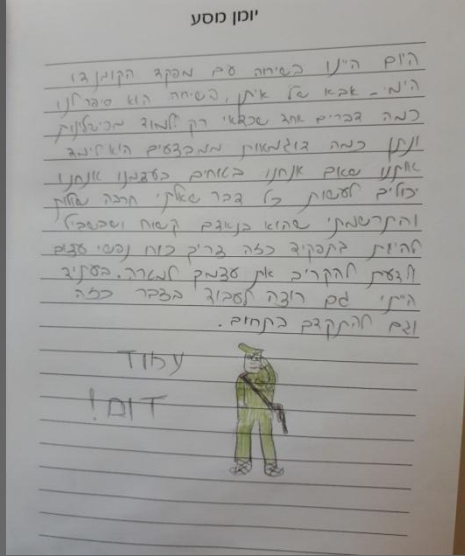 יומן מסע
היום היינו בשיחה עם מפקד הקומנדו
הימי - אבא של איתן, בשיחה הוא סיפר לנו
כמה דברים אחד שכדאי רק ללמוד מכישלונות
ונתן כמה דוגמאות ממבצעים הוא לימד
אותנו שאם אנחנו בטוחים בעצמנו אנחנו
יכולים לעשות כל דבר שאלתי הרבה שאלות
והתרשמתי שהוא בנאדם קשוח ושבשביל
להיות בתפקיד כזה צריך כוח נפשי עצום
ולדעת להקריב את עצמך למטרה. בעתיד
הייתי גם רוצה לעבוד בדבר כזה
וגם להתקדם בתחום.
עמוד
דום!